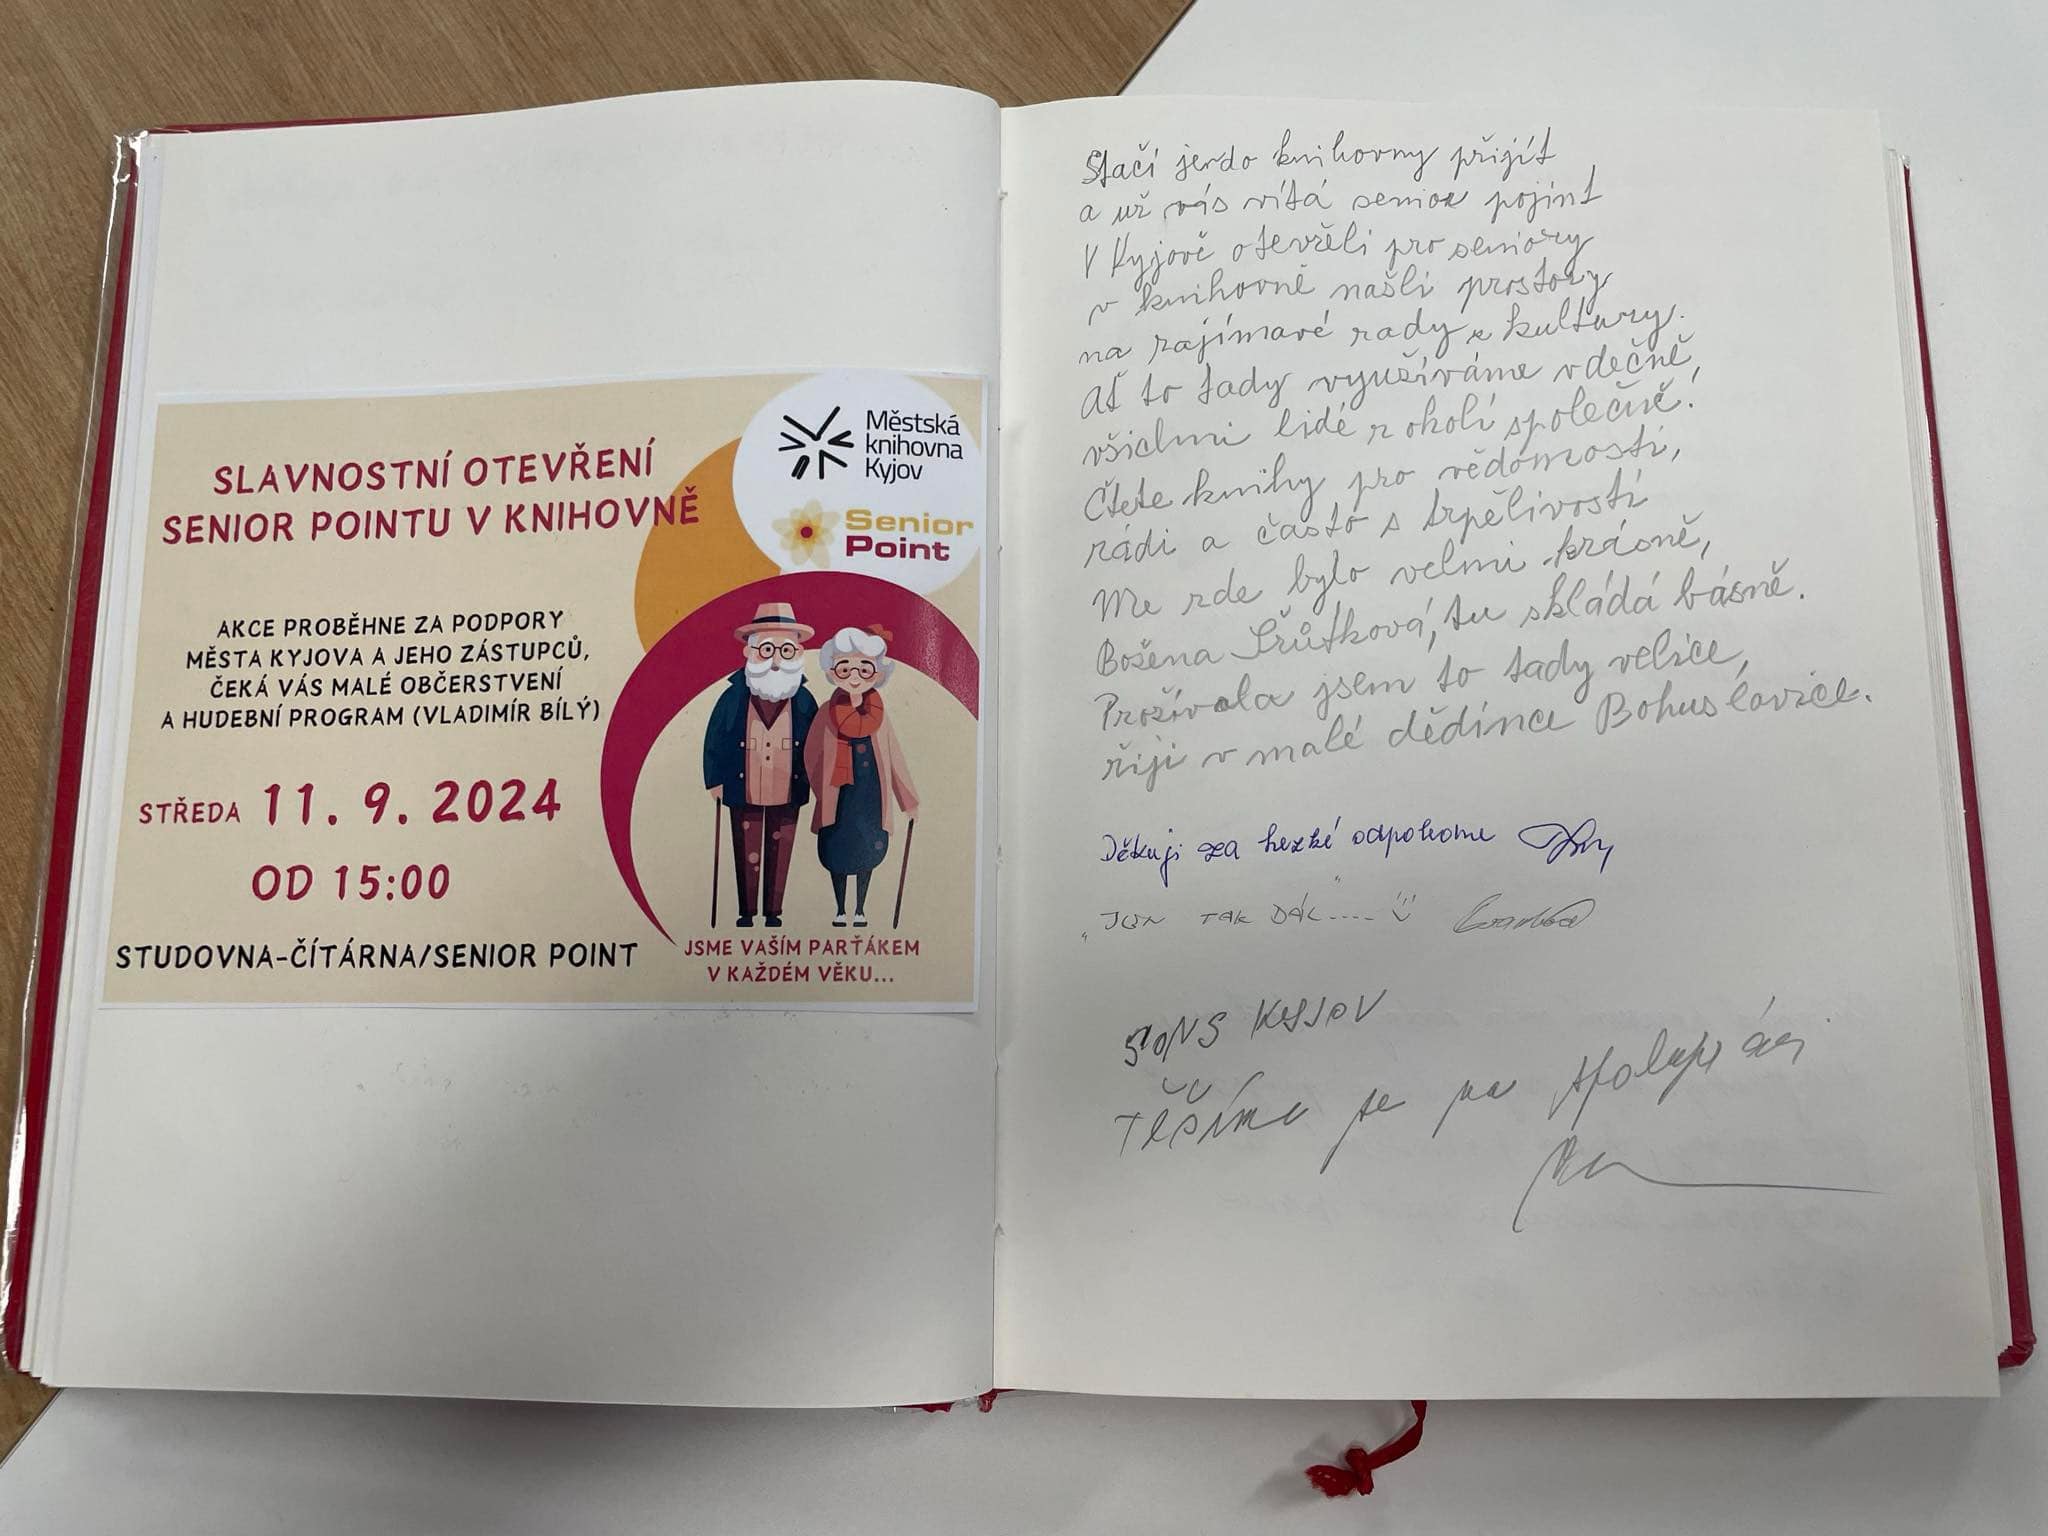 SLAVNOSTNÍ OTEVŘENÍ
SENIOR POINTU V KNIHOVNĚ
Městská
knihovna
Kyjov
Senior
Point
AKCE PROBĚHNE ZA PODPORY
MĚSTA KYJOVA A JEHO ZÁSTUPCŮ,
ČEKÁ VÁS MALÉ OBČERSTVENÍ
A HUDEBNÍ PROGRAM (VLADIMÍR BÍLÝ)
STŘEDA 11. 9. 2024
OD 15:00
STUDOVNA-ČÍTÁRNA/SENIOR POINT
JSME VAŠÍM PARŤÁKEM
V KAŽDÉM VĚKU...
Stačí jen do knihovny přijít
a už vás vítá senior pojint
V Kyjově otevřeli pro seniory
v knihovně našli prostory
na zajímavé rady z kultury.
Ať to tady využíváme vděčně,
všichni lidé z okolí společně!
Čtete knihy pro vědomosti,
rádi a často s trpělivostí
Me zde bylo velmi krásně,
Božena Šrůtková, tu skládá básně.
Prožívala jsem to tady velice,
žiji v malé dědince Bohuslavice.
Děkuji za hezké odpoledne
"JEN TAK DÁL"....
SONS KYJOV
Těšíme se na spolupráci